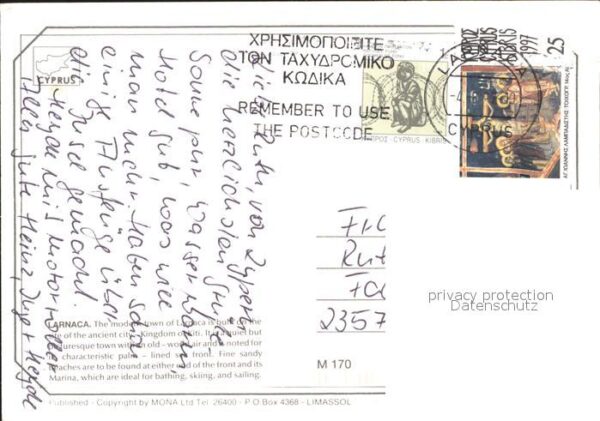 CYPRUS
ΧΡΗΣΙΜΟΠΟΙΕΙΤΕ
ΤΟΝ ΤΑΧΥΔΡΟΜΙΚΟ
ΚΩΔΙΚΑ
REMEMBER TO USE
THE POSTCODE
LA
CYPRUS
ΚΥΠΡΟΣ
KIBRIS
1997
25
CYPRUS KIBRIS
Liebe Ruth, von Zypern
die herzlichsten Grüße.
Sonne pur, Wasser warm,
Hotel gut, was will
man mehr haben schon
einige Ausflüge über
die Insel gemacht.
Heyde mit Motorroller
Alles Gute Heinz, Inge + Heyde
Ru
Fa
2357
privacy protection
Datenschutz
LARNACA. The modern town of Larnaca is built on the
site of the ancient city - Kingdom of Kiti. It is a quiet but
picturesque town with an old - world air and is noted for
its characteristic palm - lined sea front. Fine sandy
beaches are to be found at either end of the front and its
Marina, which are ideal for bathing, skiing, and sailing.
M 170
Published - Copyright by MONA Ltd Tel. 26400 - P.O.Box 4368 - LIMASSOL